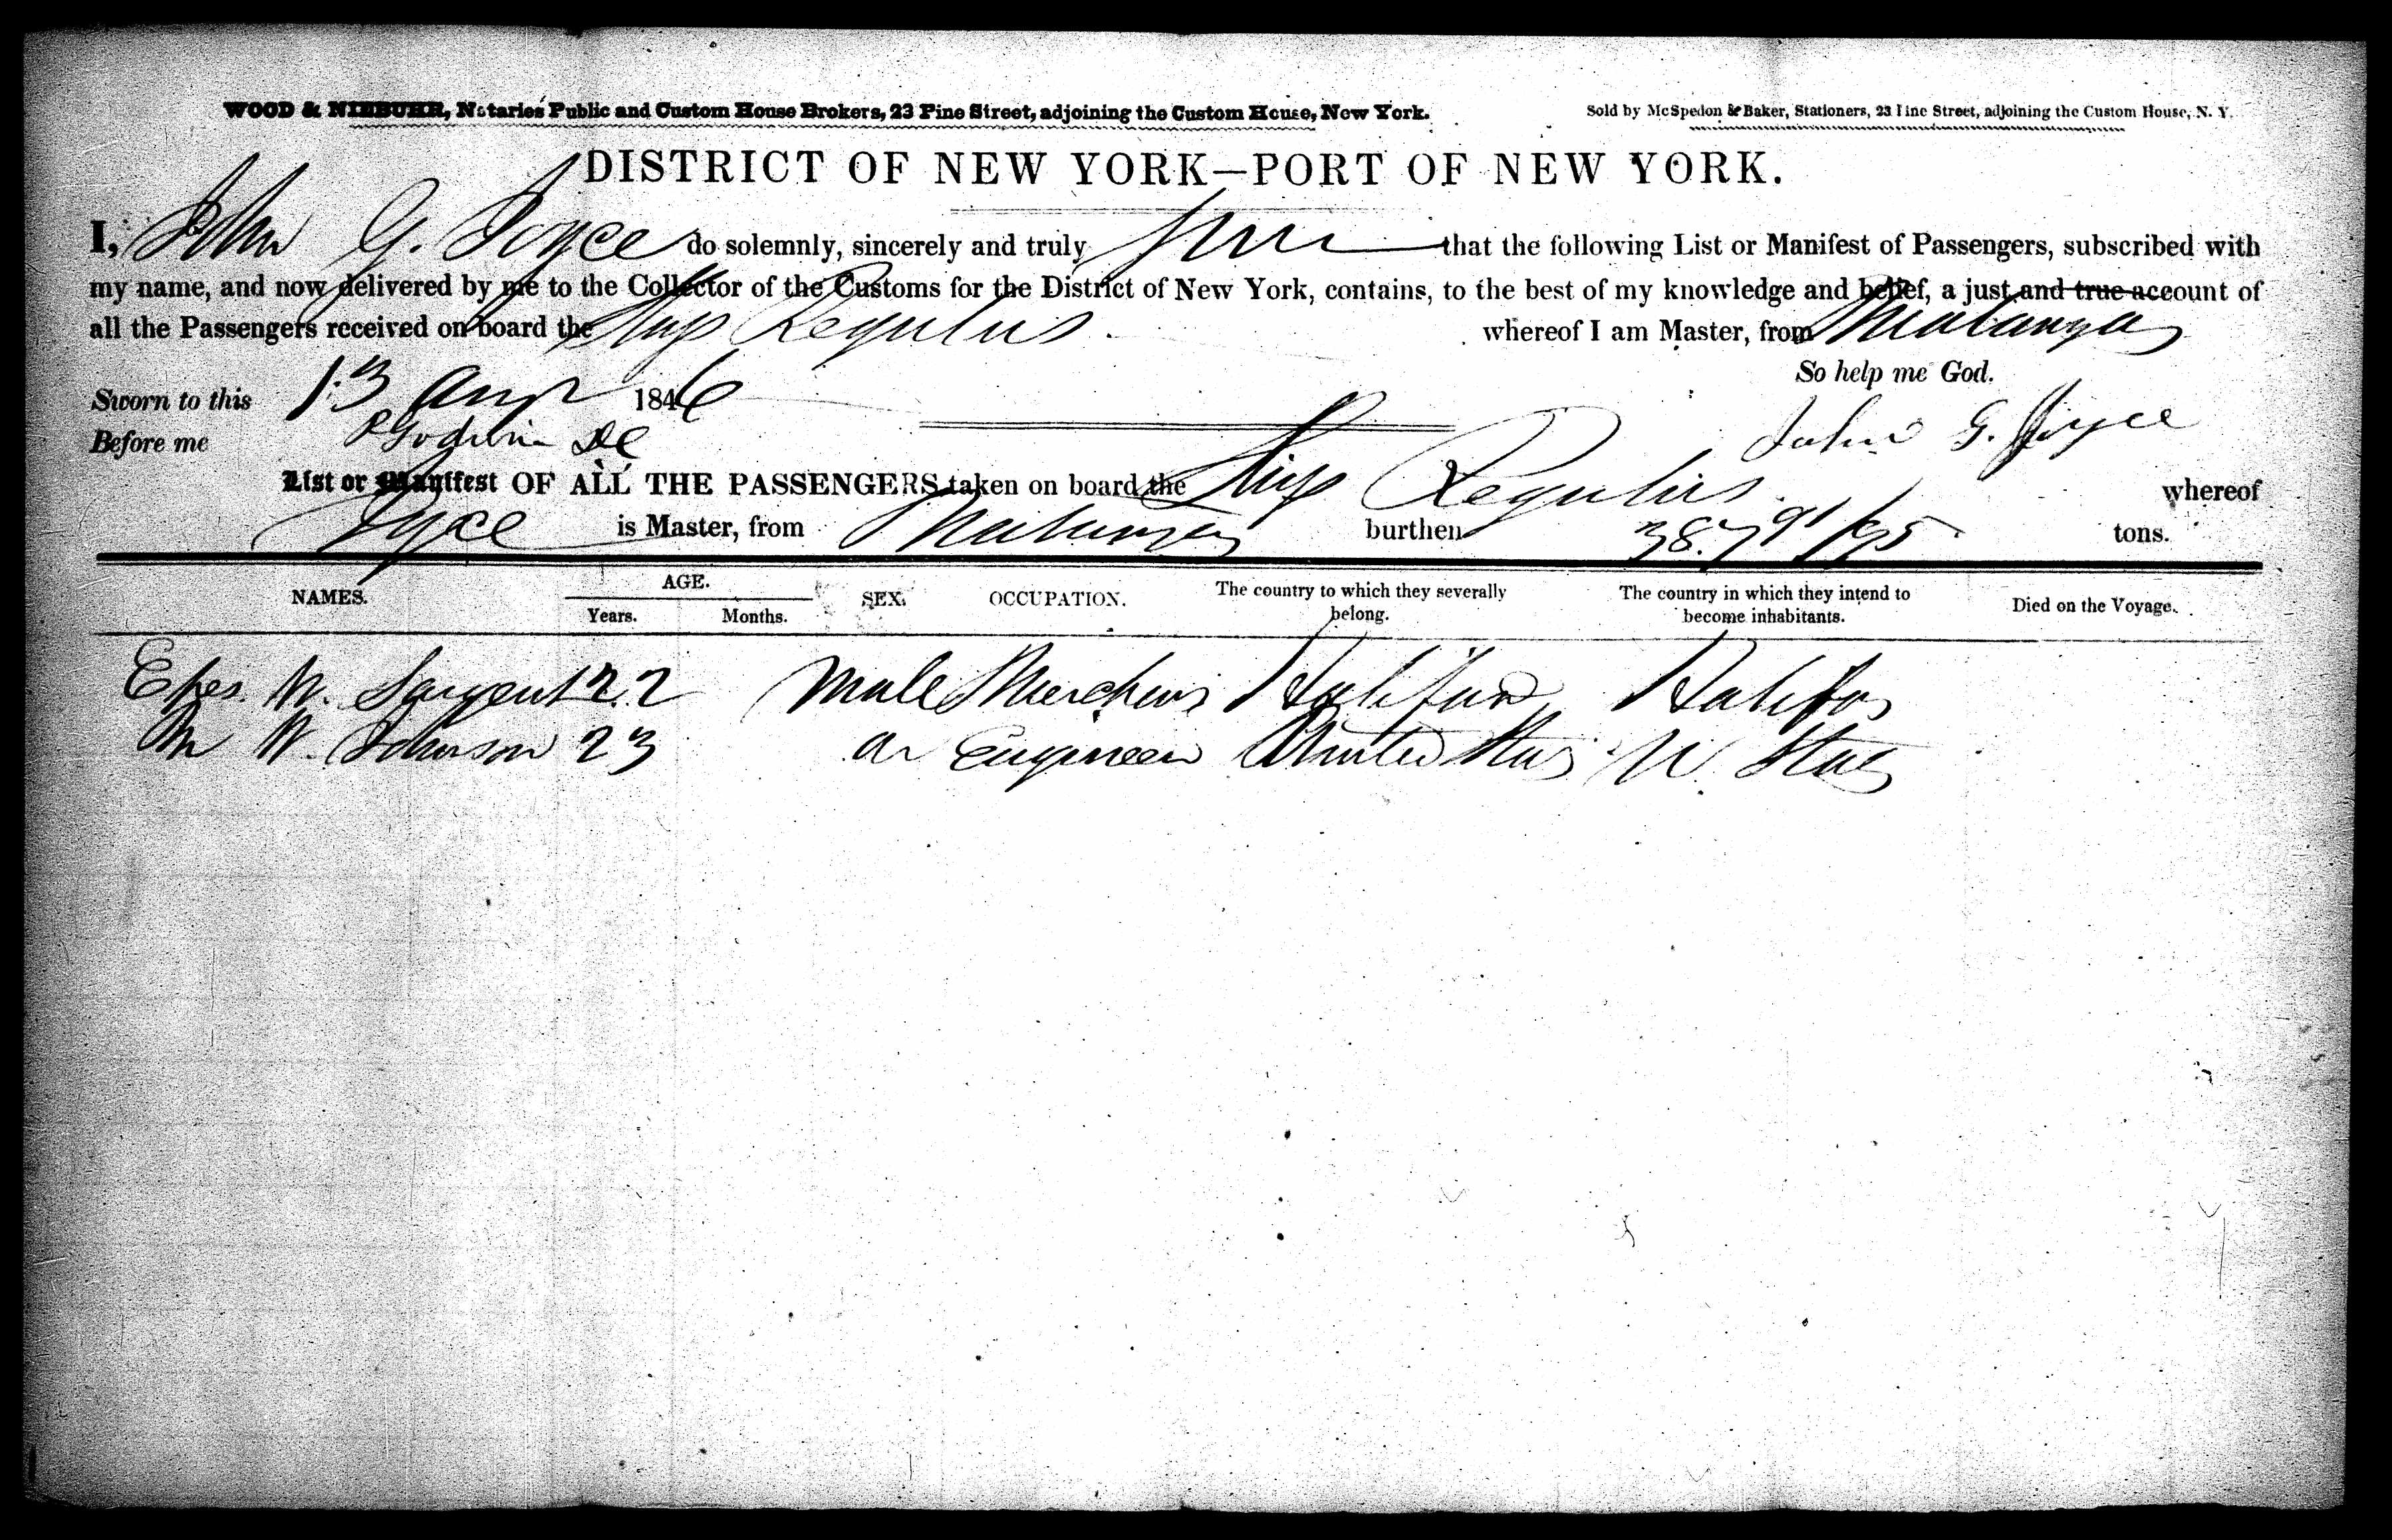 WOOD & NIEBUHR, Notaries Public and Custom House Brokers, 23 Pine Street, adjoining the Custom House, New York.
Sold by McSpedon & Baker, Stationers, 23 Pine Street, adjoining the Custom House, N. Y.
DISTRICT OF NEW YORK—PORT OF NEW YORK.
I, John G. Joyce do solemnly, sincerely and truly that the following List or Manifest of Passengers, subscribed with
my name, and now delivered by me to the Collector of the Customs for the District of New York, contains, to the best of my knowledge and belief, a just and true account of
all the Passengers received on board the Ship Regulus whereof I am Master, from Matanzas
So help me God.
Sworn to this 13 1846
Before me John G. Joyce
List or Manifest OF ALL THE PASSENGERS taken on board the Ship Regulus whereof
Joyce is Master, from Matanzas burthen 387 91/95 tons.
NAMES. AGE. Years. Months. SEX. OCCUPATION. The country to which they severally belong. The country in which they intend to become inhabitants. Died on the Voyage.
Epes W. Sargent 22 Male Merchant Halifax Halifax
W. Johnson 23 Engineer United States U. States